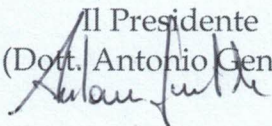 Il Presidente
(Dott. Antonio Gen